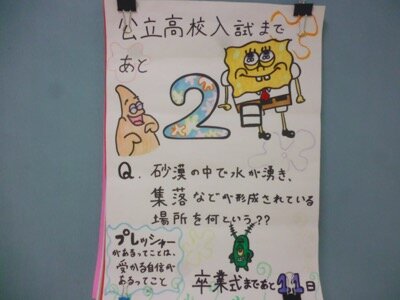 公立高校入試まで
あと
2
Q. 砂漠の中で水が湧き、
集落などが形成されている
場所を何という??
プレッシャーが
があるってことは、
受かる自信が
あるってこと
卒業式まであと11日